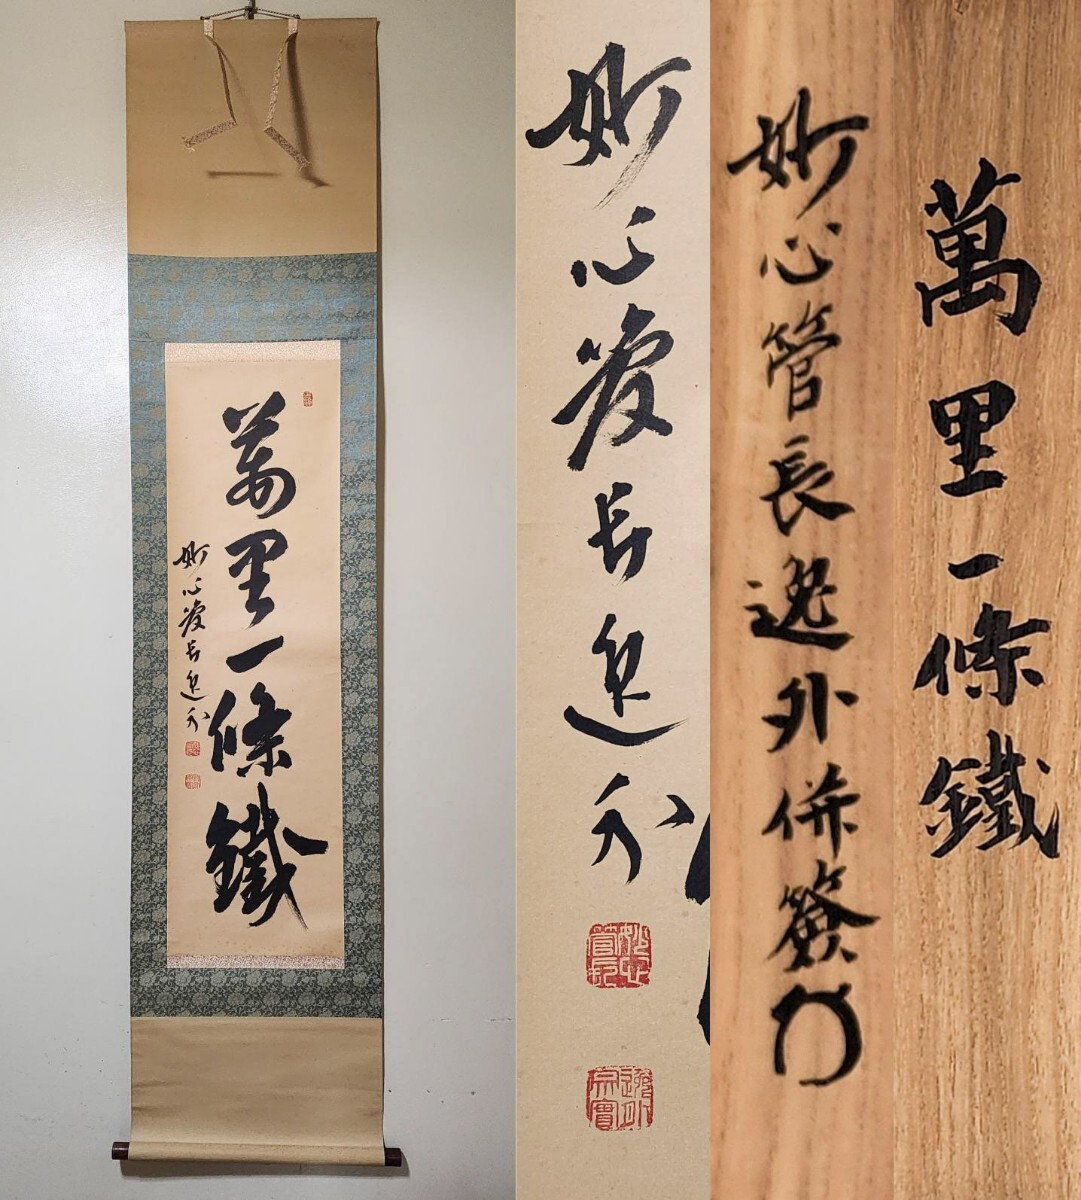 萬里一條鐵
妙心管長逸外
妙心管長逸外
妙心管長逸外併簽
萬里一條鐵